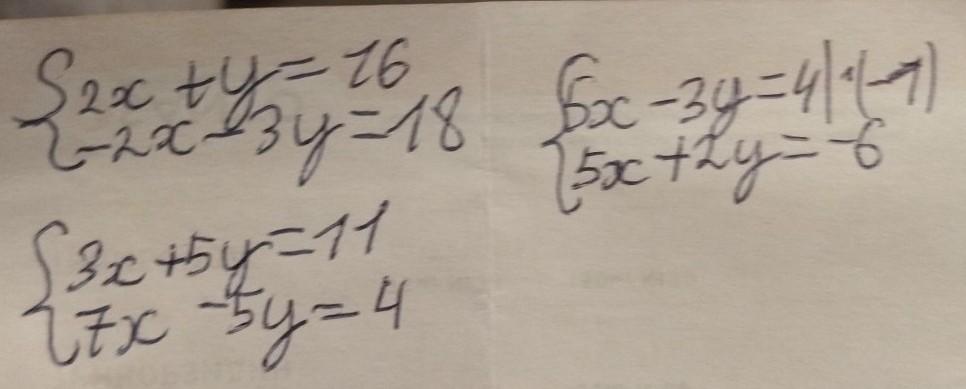 2x + y = 16
-2x - 3y = 18
5x - 3y = 4 | · (-1)
5x + 2y = -6
3x + 5y = 11
7x - 5y = 4